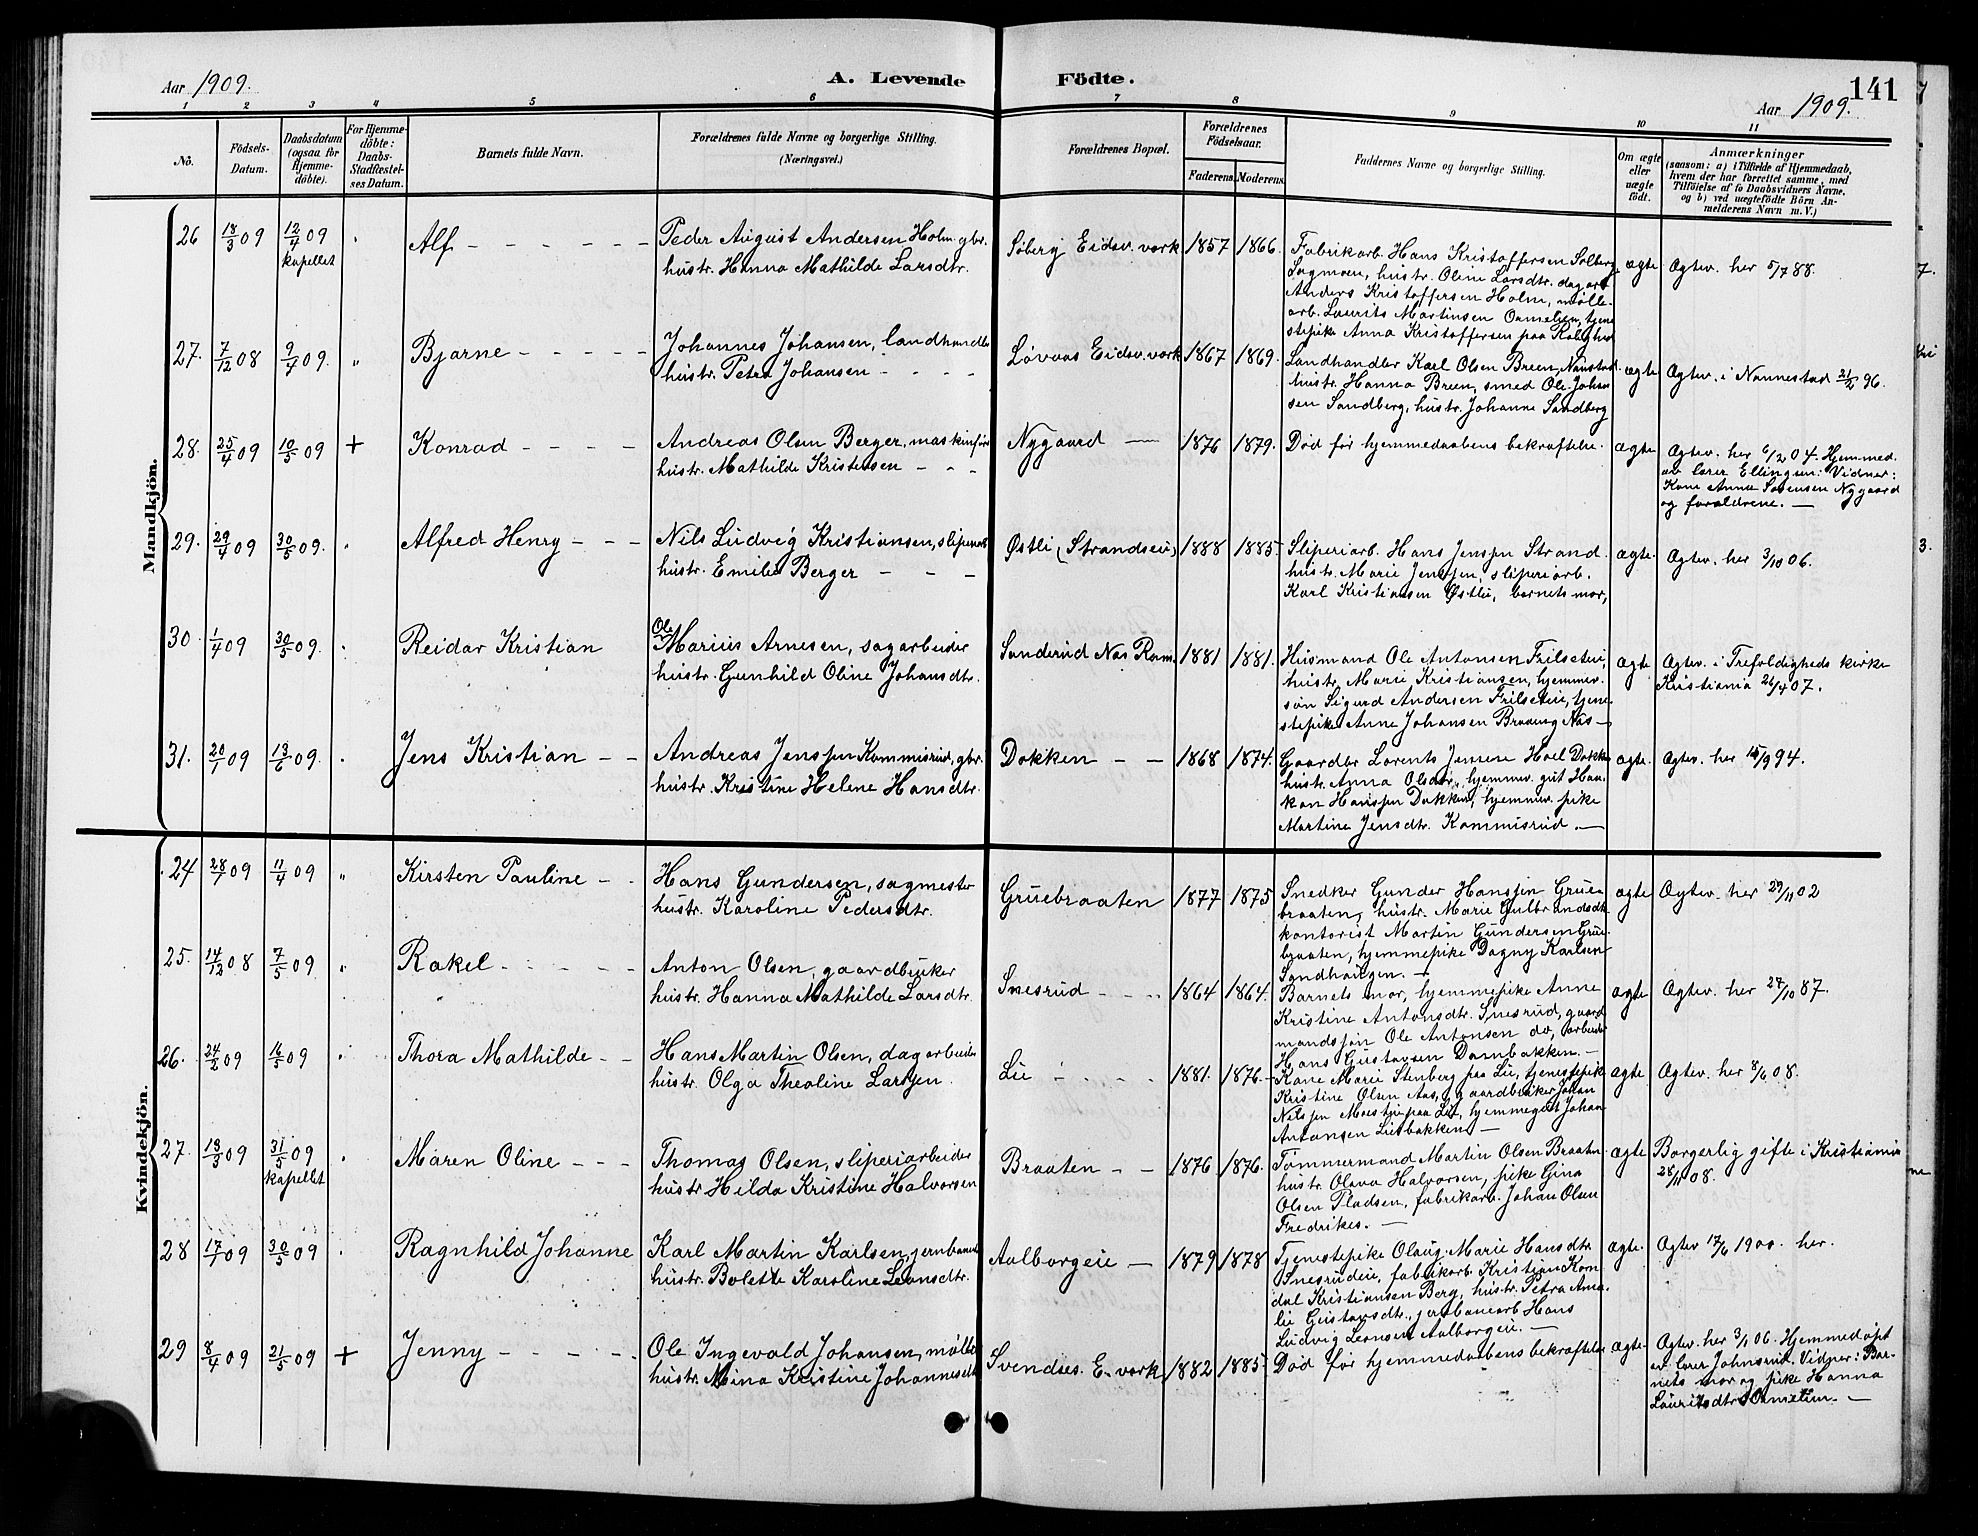 Aar 1909.
A. Levende
Födte.
141
Aar 1909.
1 2 3 4 5 6 7 8 9 10 11
No.
Födsels-
Datum.
Daabsdatum
(ogsaa for
Hjemme-
döbte).
For Hjemme-
döbte:
Daabs-
Stadfæstel-
ses Datum.
Barnets fulde Navn.
Forældrenes fulde Navne og borgerlige Stilling.
(Næringsvei.)
Forældrenes Bopæl.
Forældrenes
Födselsaar.
Faderens. Moderens.
Faddernes Navne og borgerlige Stilling.
Om ægte
eller
uægte
födt.
Anmærkninger
(saasom: a) i Tilfælde af Hjemmedaab,
hvem der har forrettet samme, med
Tilföielse af to Daabsvidners Navne,
og b) ved uægtefödte Börn An-
melderens Navn m. V.)
Mandkjön.
26 18/3 09 12/4 09 kapellet Alf
Peder August Andersen Holm gbr.
hustr. Hanna Mathilde Larsdtr.
Soberg Eidsv. verk 1857 1866.
Fabrikarb. Hans Kristoffersen Solberg
Sagmoen, hustr. Oline Larsdtr. dagarb
Anders Kristoffersen Holm, mølle-
arb. Laurits Martinsen Ormelien, tjene
stepike Anna Kristoffersen paa
ægte Ægtev. her 5/7 88.
27. 7/12 08 9/4 09. " Bjarne
Johannes Johansen, landhandler
hustr. Petra Johansen
Løvaas Eidsv. verk 1867 1869.
Landhandler Karl Olsen Breen, Nannestad
hustr. Hanna Breen, smed Ole Johan
sen Sandberg, hustr. Johanne Sandberg
ægte Ægtev. i Nannestad 21/2 96.
28. 25/4 09 10/5 09 + Konrad
Andreas Olsen Berger, maskinfør
hustr. Mathilde Kristensen
Nygaard 1876 1879. Død før hjemmedaabens bekræftelse.
ægte Ægtev. her 6/12 04. Hjemmed.
av lærer Ellingsen: Vidner:
Kone Anna Sørensen Nygaard
og forældrene.
29. 29/4 09 30/5 09. Alfred Henry
Nils Ludvig Kristiansen, sliperiarb
hustr. Emilie Berger
Østli (Strandseie) 1888 1885.
Sliperiarb. Hans Jensen Strand.
hustr. Marie Jensen, sliperiarb.
Karl Kristiansen Østlie, barnets mor,
ægte. Ægtev. her 3/10 06.
30. 1/4 09 30/5 09. Reidar Kristian
Ole Marius Arnesen, sagarbeider
hustr. Gunhild Oline Johansdtr.
Sanderud Næs Rom. 1881 1881.
Husmand Ole Antonsen Frilseteie,
hustr. Marie Kristiansen, hjemmev.
søn Sigurd Andersen Frilseteie, tjene
stepike Anne Johansen Braaeng Næs
ægte Ægtev. i Trefoldigheds kirke
Kristiania 26/4 07.
31. 20/1 09 13/6 09. Jens Kristian
Andreas Jenssen Kommisrud, gbr.
hustr. Kristine Helene Hansdtr.
Dokken 1868 1874.
Gaardbr Lorents Jensen Hoel Dokken
hustr. Anna Olsdtr., hjemmev. gut Haa-
kon Hanssen Dokken, hjemmev. pike
Martine Jensdtr. Kommisrud.
ægte. Ægtev. her 15/9 94.
Kvindekjön.
24 28/1 09 11/4 09 " Kirsten Pauline
Hans Gundersen, sagmester
hustr. Karoline Pedersdtr.
Gruebraaten 1877 1875
Snedker Gunder Hanssen Grue-
braaten, hustr. Marie Gulbrandsdtr
kontorist Martin Gundersen Grue-
braaten, hjemmepike Dagny Karlsen
Sandhaugen.
ægte Ægtev. her 29/11 02
25. 14/12 08 7/5 09 " Rakel
Anton Olsen, gaardbruker
hustr. Hanna Mathilde Larsdtr.
Snesrud 1864 1864.
Barnets mor, hjemmepike Anne
Kristine Antonsdtr. Snesrud, gaard
mandssøn Ole Antonsen do, arbeider
Hans Gustavsen Dambakken.
ægte Ægtev. her 27/10 87.
26. 24/2 09 16/5 09 Thora Mathilde
Hans Martin Olsen, dagarbeider
hustr. Olga Theoline Larssen.
Lie 1881. 1876.
Kone Marie Stenberg paa Lie, tjenestepik
Kristine Olsen Aas, gaardbruker Johan
Nilssen Moestue paa Lie, hjemmegut Johan
Antonsen Liesbakken.
ægte Ægtev. her 8/6 08.
27. 18/3 09 31/5 09 kapellet Maren Oline
Thomas Olsen, sliperiarbeider
hustr Hilda Kristine Halvorsen
Braaten 1876 1876.
Tømmermand Martin Olsen Braaten
hustr. Olava Halvorsen, pike Gina
Olsen Pladsen, fabrikarb. Johan Olsen
Fredrikes.
ægte Borgerlig gifte i Kristiania
28/11 08.
28 17/1 09 30/5 09 Ragnhild Johanne
Karl Martin Karlsen, jernbanearb
hustr. Bolette Karoline Leonsdtr.
Aalborgeie 1879 1878
Tjenestepike Olaug Marie Hansdtr.
Snesrudeie, fabrikarb. Kristian Kom
dal Kristiansen Berg, hustr. Petra Ama-
lie Gustavsdtr., jernbanearb Hans
Ludvig Leonsen Aalborgeie.
ægte. Ægtev 17/6 1900. her.
29 8/4 09 21/5 09 + Jenny
Ole Ingevald Johansen, mølle
hustr. Mina Kristine Johannesdtr
Svendses. E. verk 1882 1885.
Død før hjemmedaabens bekræftelse
ægte. Ægtev. her 3/1 06. Hjemmedøpt
av lærer Johnsrud. Vidner: Bar-
nets mor og pike Hanna
Lauritsdtr Ormelien.